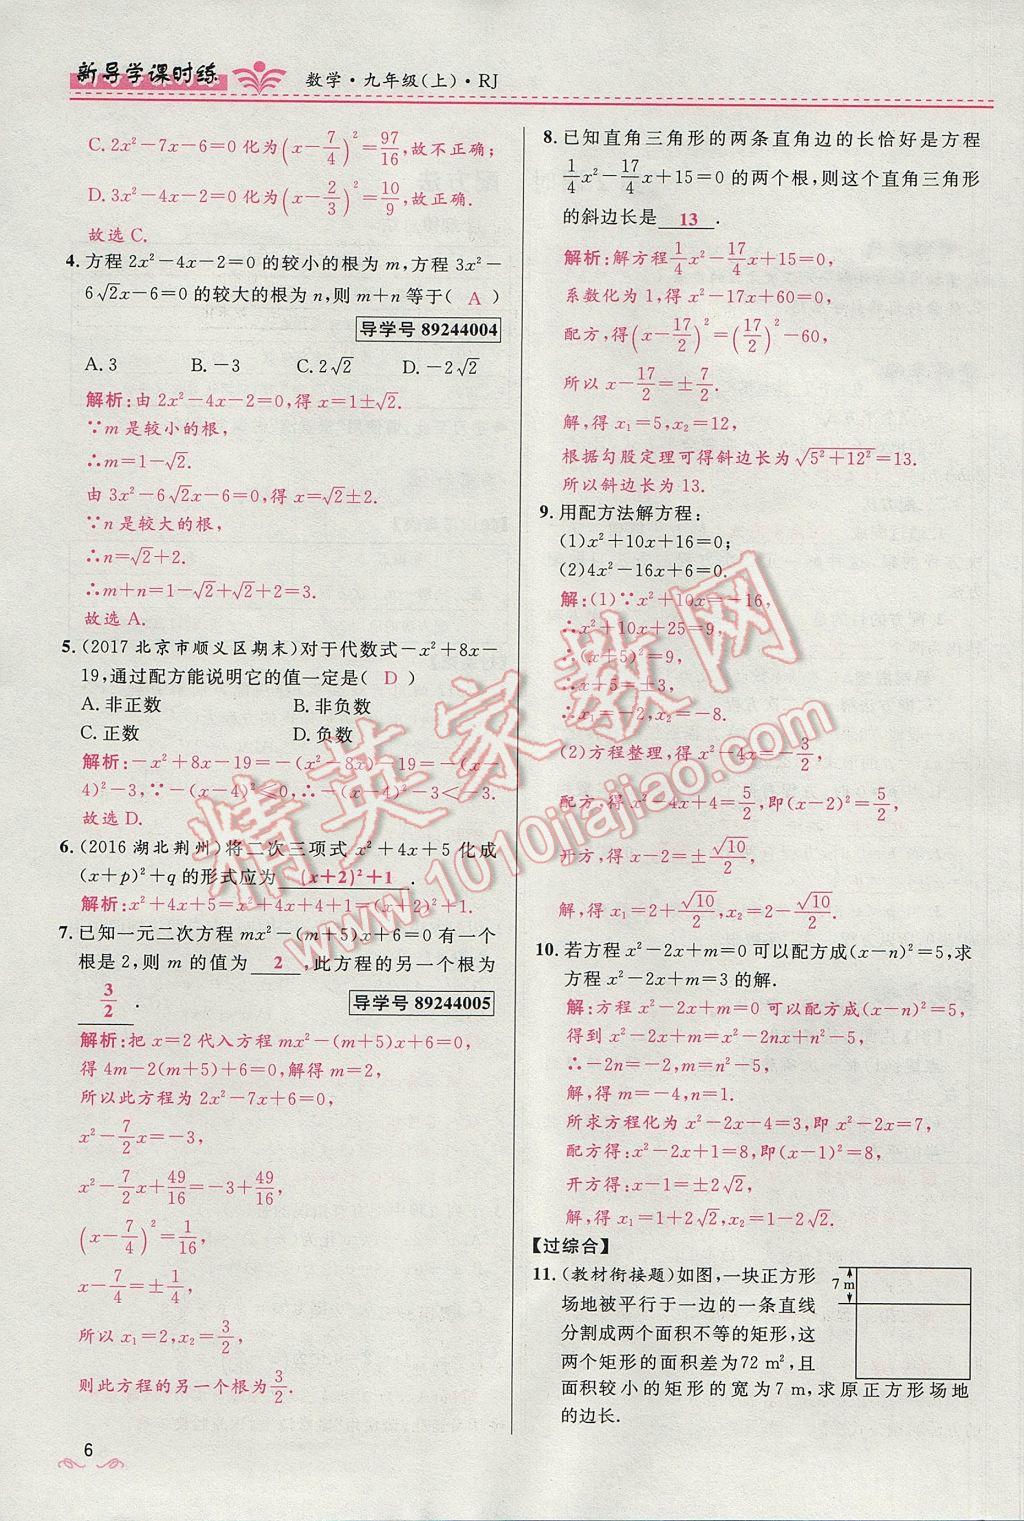 新导学课时练 数学·九年级(上)·RJ
C. 2x²-7x-6=0 化为(x-7/4)²=97/16,故不正确;
D. 3x²-4x-2=0 化为(x-2/3)²=10/9,故正确.
故选 C.
4. 方程 2x²-4x-2=0 的较小的根为 m,方程 3x²-
6√2x-6=0 的较大的根为 n,则 m+n 等于( A )
导学号 89244004
A. 3 B. -3 C. 2√2 D. -2√2
解析:由 2x²-4x-2=0,得 x=1±√2.
∵m 是较小的根,
∴m=1-√2.
由 3x²-6√2x-6=0,得 x=√2±2.
∵n 是较大的根,
∴n=√2+2.
∴m+n=1-√2+√2+2=3.
故选 A.
5. (2017 北京市顺义区期末)对于代数式-x²+8x-
19,通过配方能说明它的值一定是( D )
A. 非正数 B. 非负数
C. 正数 D. 负数
解析:-x²+8x-19=-(x²-8x)-19=-(x-
4)²-3,∵-(x-4)²≤0,∴-(x-4)²-3≤-3.
故选 D.
6. (2016 湖北荆州)将二次三项式 x²+4x+5 化成
(x+p)²+q 的形式应为 (x+2)²+1 .
解析:x²+4x+5=x²+4x+4+1=(x+2)²+1.
7. 已知一元二次方程 mx²-(m+5)x+6=0 有一个
根是 2,则 m 的值为 2 ,此方程的另一个根为
3/2 . 导学号 89244005
解析:把 x=2 代入方程 mx²-(m+5)x+6=0,
得 4m-2(m+5)+6=0,解得 m=2,
所以此方程为 2x²-7x+6=0,
x²-7/2x=-3,
x²-7/2x+49/16=-3+49/16,
(x-7/4)²=1/16,
x-7/4=±1/4,
所以 x₁=2,x₂=3/2,
则此方程的另一个根为3/2.
6
8. 已知直角三角形的两条直角边的长恰好是方程
1/4x²-17/4x+15=0 的两个根,则这个直角三角形
的斜边长是 13 .
解析:解方程1/4x²-17/4x+15=0,
系数化为 1,得 x²-17x+60=0,
配方,得(x-17/2)²=(17/2)²-60,
所以 x-17/2=±7/2.
解,得 x₁=5,x₂=12,
根据勾股定理可得斜边长为√5²+12²=13.
所以斜边长为 13.
9. 用配方法解方程:
(1)x²+10x+16=0;
(2)4x²-16x+6=0.
解:(1)∵x²+10x=-16,
∴x²+10x+25=9,
∴(x+5)²=9,
∴x+5=±3,
∴x₁=-2,x₂=-8.
(2)方程整理,得 x²-4x=-3/2,
配方,得 x²-4x+4=5/2,即(x-2)²=5/2,
开方,得 x-2=±√10/2,
解,得 x₁=2+√10/2,x₂=2-√10/2.
10. 若方程 x²-2x+m=0 可以配方成(x-n)²=5,求
方程 x²-2x+m=3 的解.
解:方程 x²-2x+m=0 可以配方成(x-n)²=5,
得到 x²-2x+m=x²-2nx+n²-5,
∴-2n=-2,m=n²-5,
解,得 m=-4,n=1.
所求方程化为 x²-2x-4=3,即 x²-2x=7,
配方得:x²-2x+1=8,即(x-1)²=8,
开方得:x-1=±2√2,
解,得 x₁=1+2√2,x₂=1-2√2.
【过综合】
11. (教材衔接题)如图,一块正方形
场地被平行于一边的一条直线
分割成两个面积不等的矩形,这
两个矩形的面积差为72 m²,且
面积较小的矩形的宽为7 m,求原正方形场地
的边长.
7 m
精英家教网
www.1010jiajiao.com